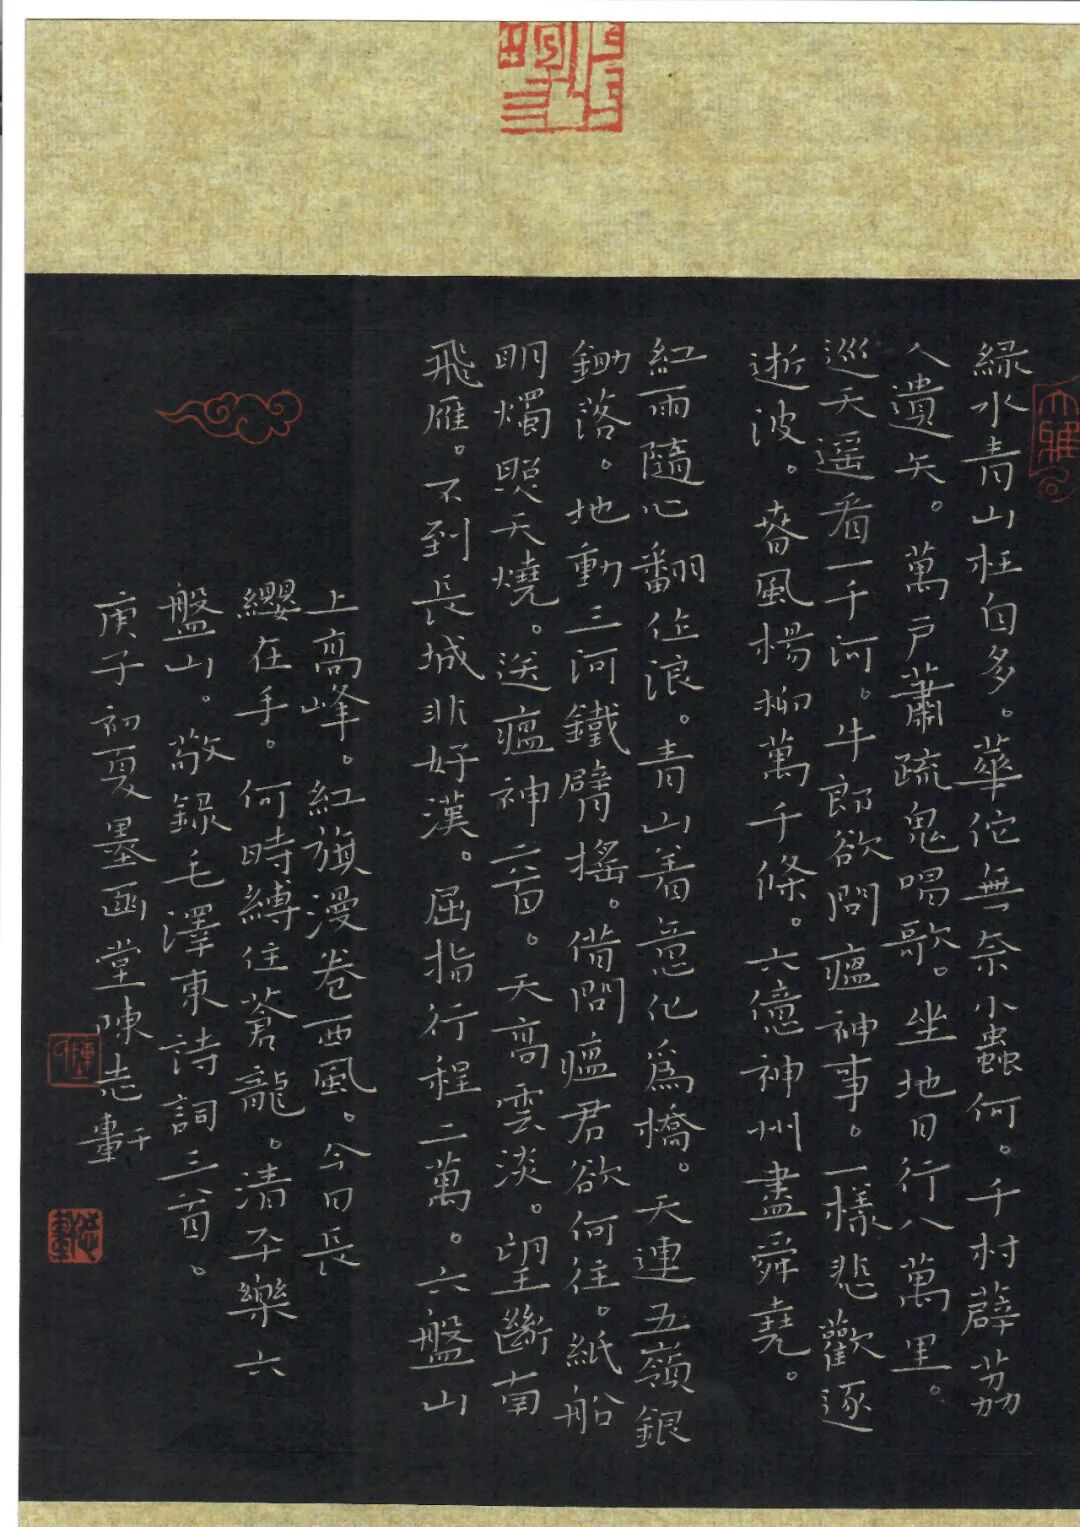 綠水青山枉自多。華佗無奈小蟲何。千村薜荔
人遺矢。萬戶蕭疏鬼唱歌。坐地日行八萬里。
巡天遥看一千河。牛郎欲問瘟神事。一樣悲歡逐
逝波。春風楊柳萬千條。六億神州盡舜堯。
紅雨隨心翻作浪。青山着意化為橋。天連五嶺銀
鋤落。地動三河鐵臂搖。借問瘟君欲何往。紙船
明燭照天燒。送瘟神二首。天高雲淡。望斷南
飛雁。不到長城非好漢。屈指行程二萬。六盤山
上高峰。紅旗漫卷西風。今日長
纓在手。何時縛住蒼龍。清平樂六
盤山。敬錄毛澤東詩詞三首。
庚子初夏墨函堂陳志
大雅